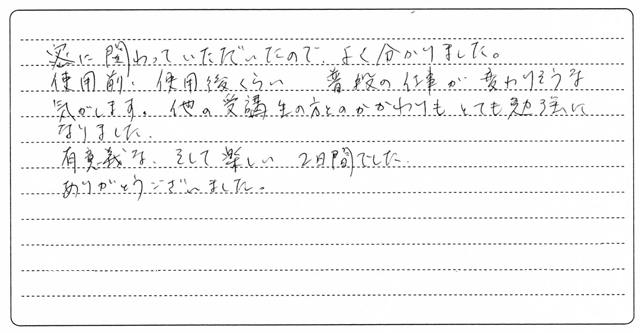 密に関わっていただいたので、よく分かりました。
使用前・使用後くらい 普段の仕事が変わりそうな
気がします。他の受講生の方とのかかわりもとても勉強に
なりました。
有意義な、そして楽しい 2日間でした。
ありがとうございました。